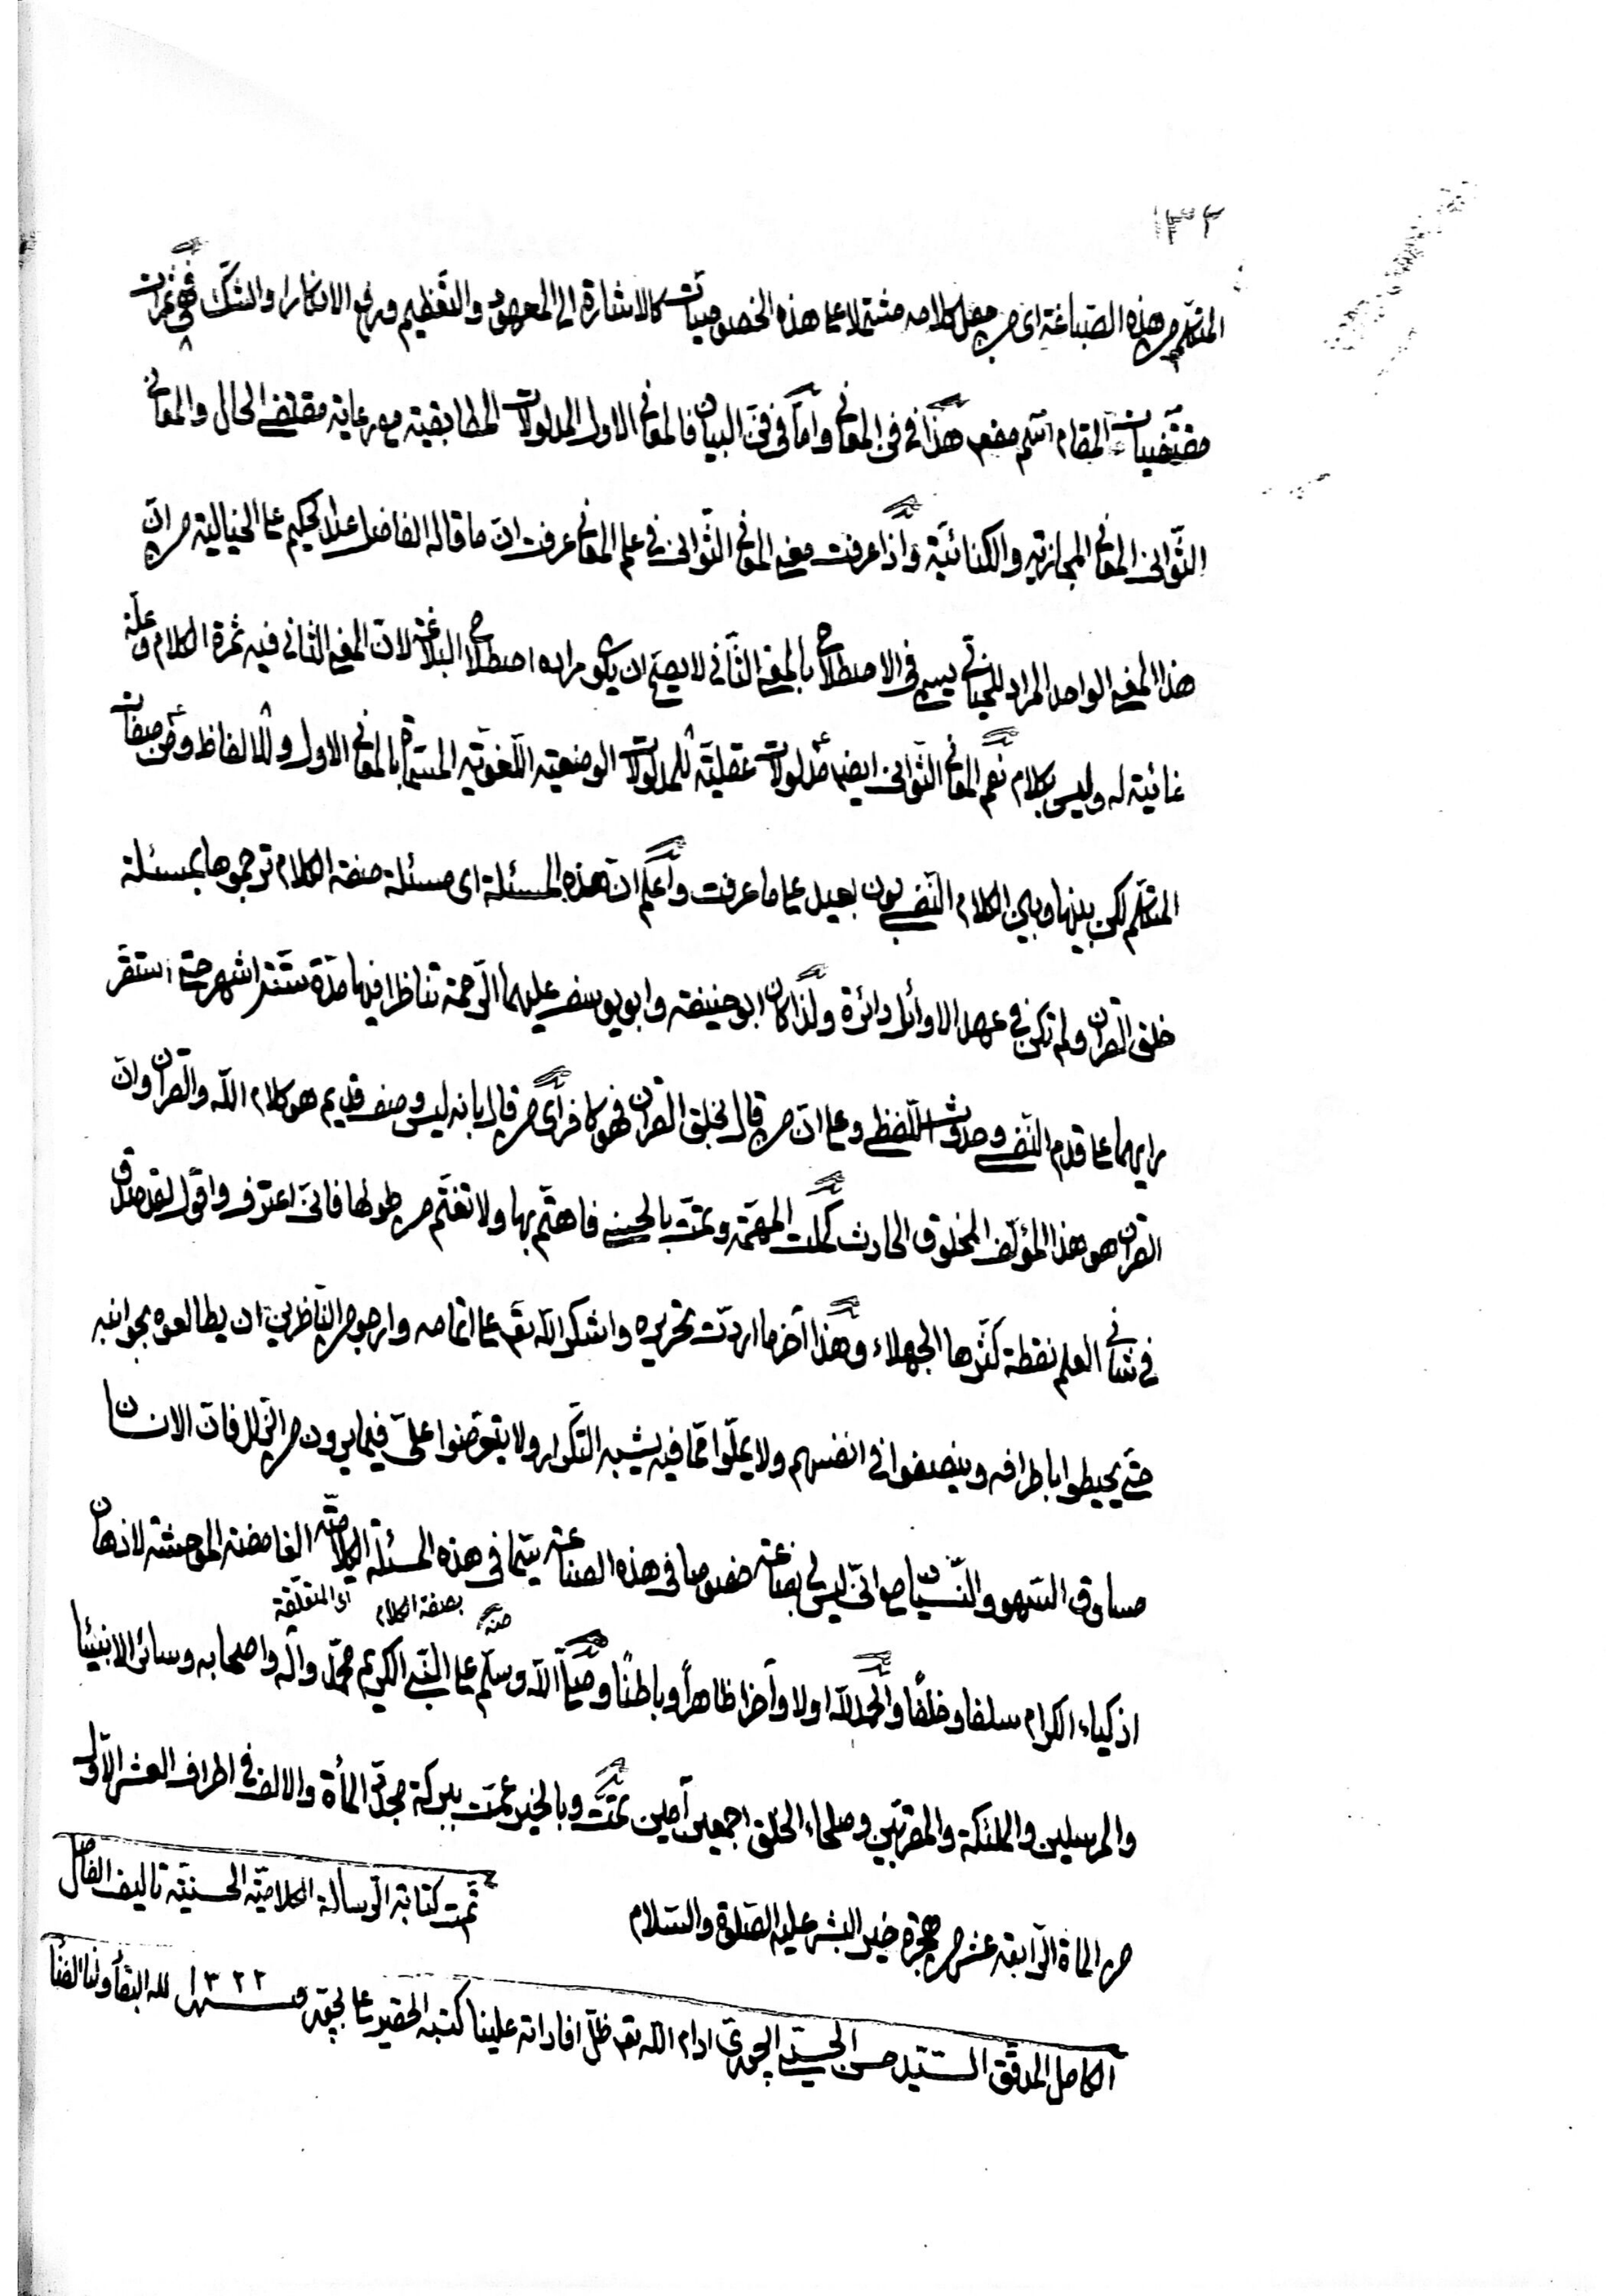 ١٣٢
المتكلم من هذه الصياغة اى من جعل كلامه مشتملا على هذه الخصوصيات كالاشارة الى المعهود والتعظيم ورفع الانكار والشك فهى ثمرات
مقتضيات المقام انتهى هذا فى فن المعانى واما فى فن البيان فالمعانى الاول المدلولات المطابقية مع رعاية مقتضى الحال والمعانى
الثوانى المعانى المجازية والكنائية واذا عرفت معنى المعانى الثوانى فى علم المعانى عرفت ان ما قاله الفاضل عبد الحكيم على الخيالية من ان
هذا المعنى الواحد المراد يسمى فى الاصطلاح بالمعنى الثانى لا يصح ان يكون مراده اصطلاح البلاغة لان المعنى الثانى فيه ثمرة الكلام وعلة
غائية له وليس بكلام نعم المعانى الثوانى ايضا مدلولات عقلية للمدلولات الوضعية اللغوية المسماة بالمعانى الاول وللالفاظ ومن صفات
المتكلم لكن بينها وبين الكلام النفسى بون بعيد على ما عرفت واعلم ان هذه المسئلة اى مسئلة صفة الكلام ترجموها بمسئلة
خلق القرآن ولم تكن فى عهد الاوائل دائرة ولذا كان ابو حنيفة وابو يوسف عليهما الرحمة تناظرا فيها مدة ستة اشهر حتى استقر
رايهما على قدم النفسى وحدوث اللفظى وعلى ان من قال بخلق القرآن فهو كافر اى من قال بانه ليس وصف قديم هو كلام الله والقرآن وان
القرآن هو هذا المؤلف المخلوق الحادث كملت المهمة وتمت بالحسنى فاهتم بها ولا تغتم من طولها فانى اعترف واقول لقد صدق
فى شانى العلم نقطة كثرها الجهلاء وهذا آخر ما اردت تحريره واشكر الله تعم على اتمامه وارجو من الناظرين ان يطالعوه بجوانبه
حتى يحيطوا باطرافه وينصفوا فى انفسهم ولا يملوا مما فيه يشبه التكرار ولا يتعرضوا على فيما يرون من الزلل فان الانسان
مساوق السهو والنسيان مع انى ليس لى بضاعة خصوصا فى هذه الصناعة سيما فى هذه المسئلة الكلامية الغامضة الموحشة لاذهان
اى المتعلقة بصفة الكلام منه
اذكياء الكرام سلفا وخلفا والحمد لله اولا وآخرا ظاهرا وباطنا وصلى الله وسلم على النبى الكريم محمد وآله واصحابه وسائر الانبيا
والمرسلين والملئكة والمقربين وصلحاء الخلق اجمعين آمين تمت وبالخير عمت ببركة مجدد المأة والالف فى اطراف العشر الاول
من المأة الرابعة عشر من هجرة خير البشر عليه الصلوة والسلام
تمت كتابة الرسالة الكلامية الحسنية تاليف الفاضل
الكامل المدقق السيد حسن الحسينى ادام الله تعم ظل افاداته علينا كتبه الحقير سنة ١٣٢٢ لله البقأ ولنا الفنأ